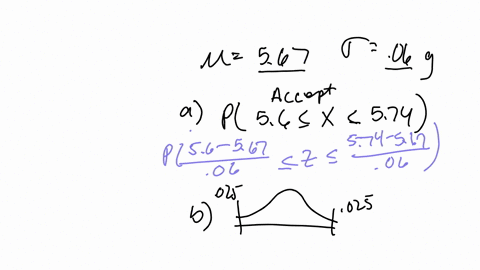 μ = 5.67 σ = .06 g
Accept
a) P( 5.6 ≤ X ≤ 5.74)
P( 5.6-5.67 / .06 ≤ Z ≤ 5.74-5.67 / .06 )
.025 .025
b)